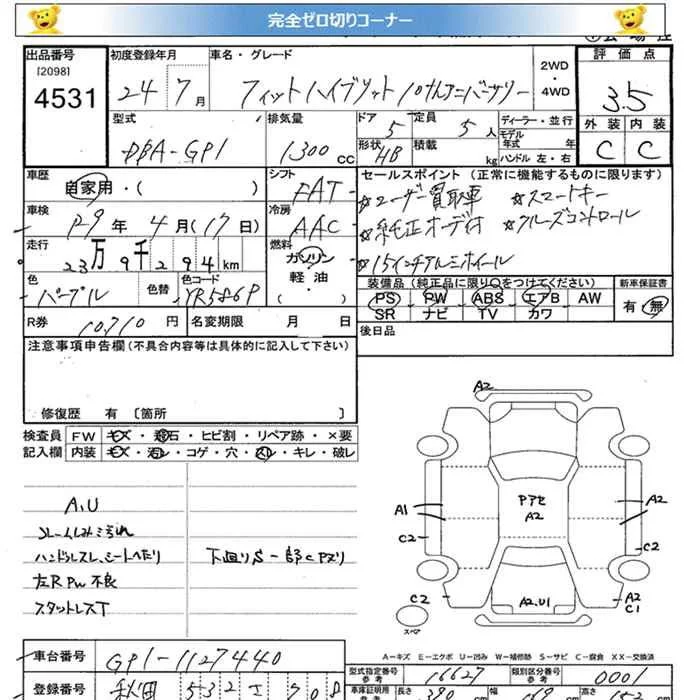 完全ゼロ切りコーナー
出品番号 [2098] 4531
初度登録年月 24 7月
車名・グレード フィットハイブリット 10thアニバーサリー
2WD・4WD
評価点 3.5
外装 C 内装 C
型式 DBA-GP1
排気量 1300 cc
ドア 5 定員 5人
形状 HB 積載 kg
ディーラー・並行
モデル年式 年
ハンドル 左・右
車歴 自家用・( )
シフト FAT
セールスポイント (正常に機能するものに限ります)
☆ユーザー買取車 ☆スマートキー
☆純正オーデ付 ☆クルーズコントロール
☆15インチアルミホイール
車検 29年 4月(17日)
冷房 AAC
走行 23万9千294km
燃料 ガソリン 軽油 ・( )
色 パープル 色替 色コード YR586P
装備品(純正品に限り○をつけてください) 新車保証書
PS PW ABS エアB AW
SR ナビ TV カワ
有・無
R券 10,710円 名変期限 月 日
後日品
注意事項申告欄(不具合内容等は具体的に記入して下さい)
修復歴 有 〔箇所 〕
検査員記入欄
FW キズ・飛石・ヒビ割・リペア跡・×要
内装 キズ・汚レ・コゲ・穴・スレ・キレ・破レ
A,U
シートしみこげ汚れ
ハンドルスレ、シートへたり
左RPW不良
スタットレスT
下廻りS 一部CPズリ
A2
A1
C2
Pアセ
A2
A2
C2
C2
A2.U1
A2
C1
スペアー
A-キズ E-エクボ U-凹み W-補修跡 S-サビ C-腐食 XX-交換済
車台番号 GP1-1127440
型式指定番号 参考 16627
類別区分番号 参考 0001
登録番号 秋田 532
車庫証明用 参考 長さ 390 幅 169 高さ 152